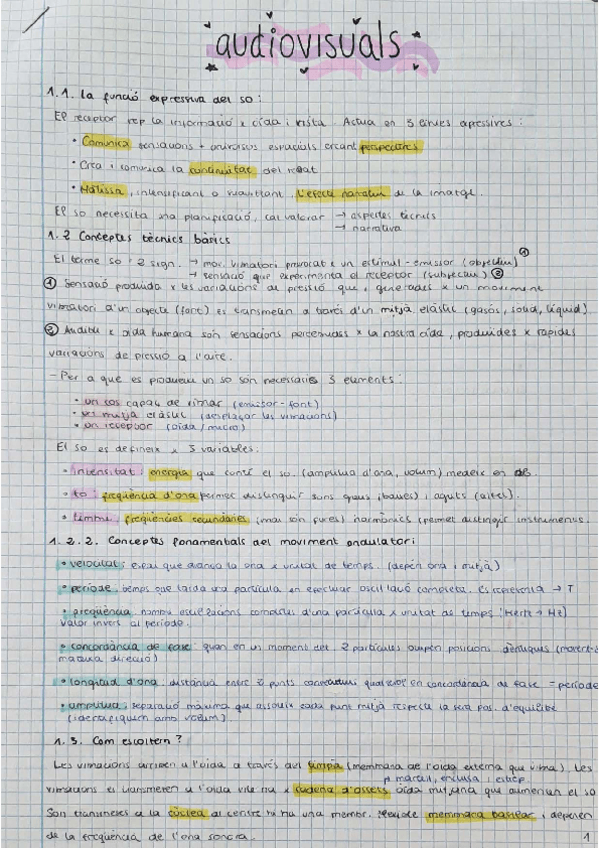 audiovisuals
1.1. La funció expressiva del so:
El receptor rep la informació x oïda i vista. Actua en 3 línies expressives:
• Comunica sensacions + entorns espacials creant perspectives
• Crea i comunica la continuïtat del relat
• Matissa, intensificant o
l'efecte narratiu de la imatge.
El so necessita una planificació, cal valorar → aspectes tècnics
→ narrativa
1.2 Conceptes tècnics bàsics
El terme so: 2 sign. → mov. vibratori provocat x un estímul-emissor (objectiu) ①
→ sensació que experimenta el receptor (subjectiu) ②
① Sensació produïda x les variacions de pressió que, generades x un moviment
vibratori d'un objecte (font) es transmeten a través d'un mitjà elàstic (gasós, sòlid, líquid).
② Audible x oïda humana són sensacions percebudes x la nostra oïda, produïdes x ràpides
variacions de pressió a l'aire.
- Per a que es produeixi un so són necessaris 3 elements:
• un cos capaç de vibrar (emissor-font)
• un mitjà elàstic (desplaçar les vibracions)
• un receptor (oïda/micro)
El so es defineix x 3 variables.
• intensitat: energia que conté el so. (amplitud d'ona, volum) medeix en dB.
• to: freqüència d'ona permet distingir sons greus (baixes) i aguts (altes).
• timbre: freqüències secundàries (mai són pures) harmònics (permet distingir instruments.
1.2.2. Conceptes fonamentals del moviment ondulatori
• velocitat: espai que avança la ona x unitat de temps. (depèn ona i mitjà)
• període: temps que tarda una partícula en efectuar oscil·lació completa. Es representa → T
• freqüència: nombre oscil·lacions completes d'una partícula x unitat de temps (Hertz → Hz)
valor invers al període.
• concordància de fase: quan en un moment det. 2 partícules ocupen posicions idèntiques
mateixa direcció)
• longitud d'ona: distància entre 2 punts consecutius qualsevol en concordància de fase = període
• amplitud: separació màxima que assoleix cada punt mitjà respecte la seva pos. d'equilibri
(identifiquem amb volum).
1.3. Com escoltem?
Les vibracions arriben a l'oïda a través del timpà (membrana de l'oïda externa que vibra). Les
→ martell, enclusa i estrep
vibracions es transmeten a l'oïda mitja x cadena d'ossets oïda mitjana que augmenten el so
Són transmeses a la còclea al centre hi ha una membr.
membrana basilar i depenen
de la freqüència de l'ona sonora.
1